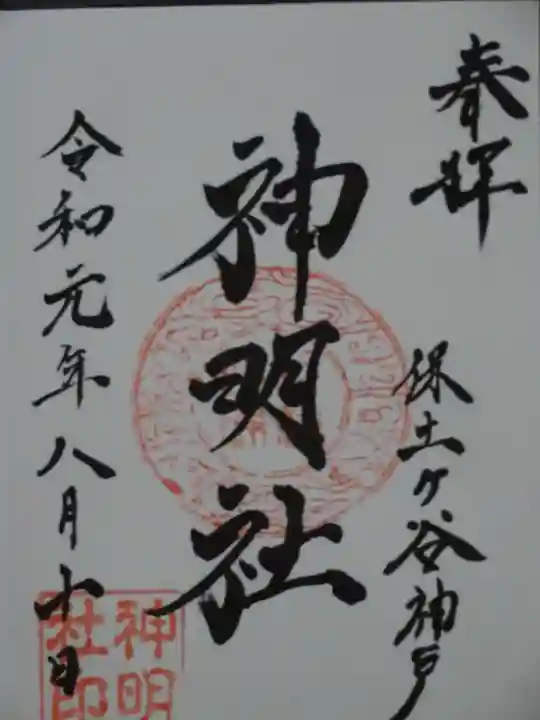 奉拝
保土ヶ谷神戸
神明社
令和元年八月十日
神明
社印